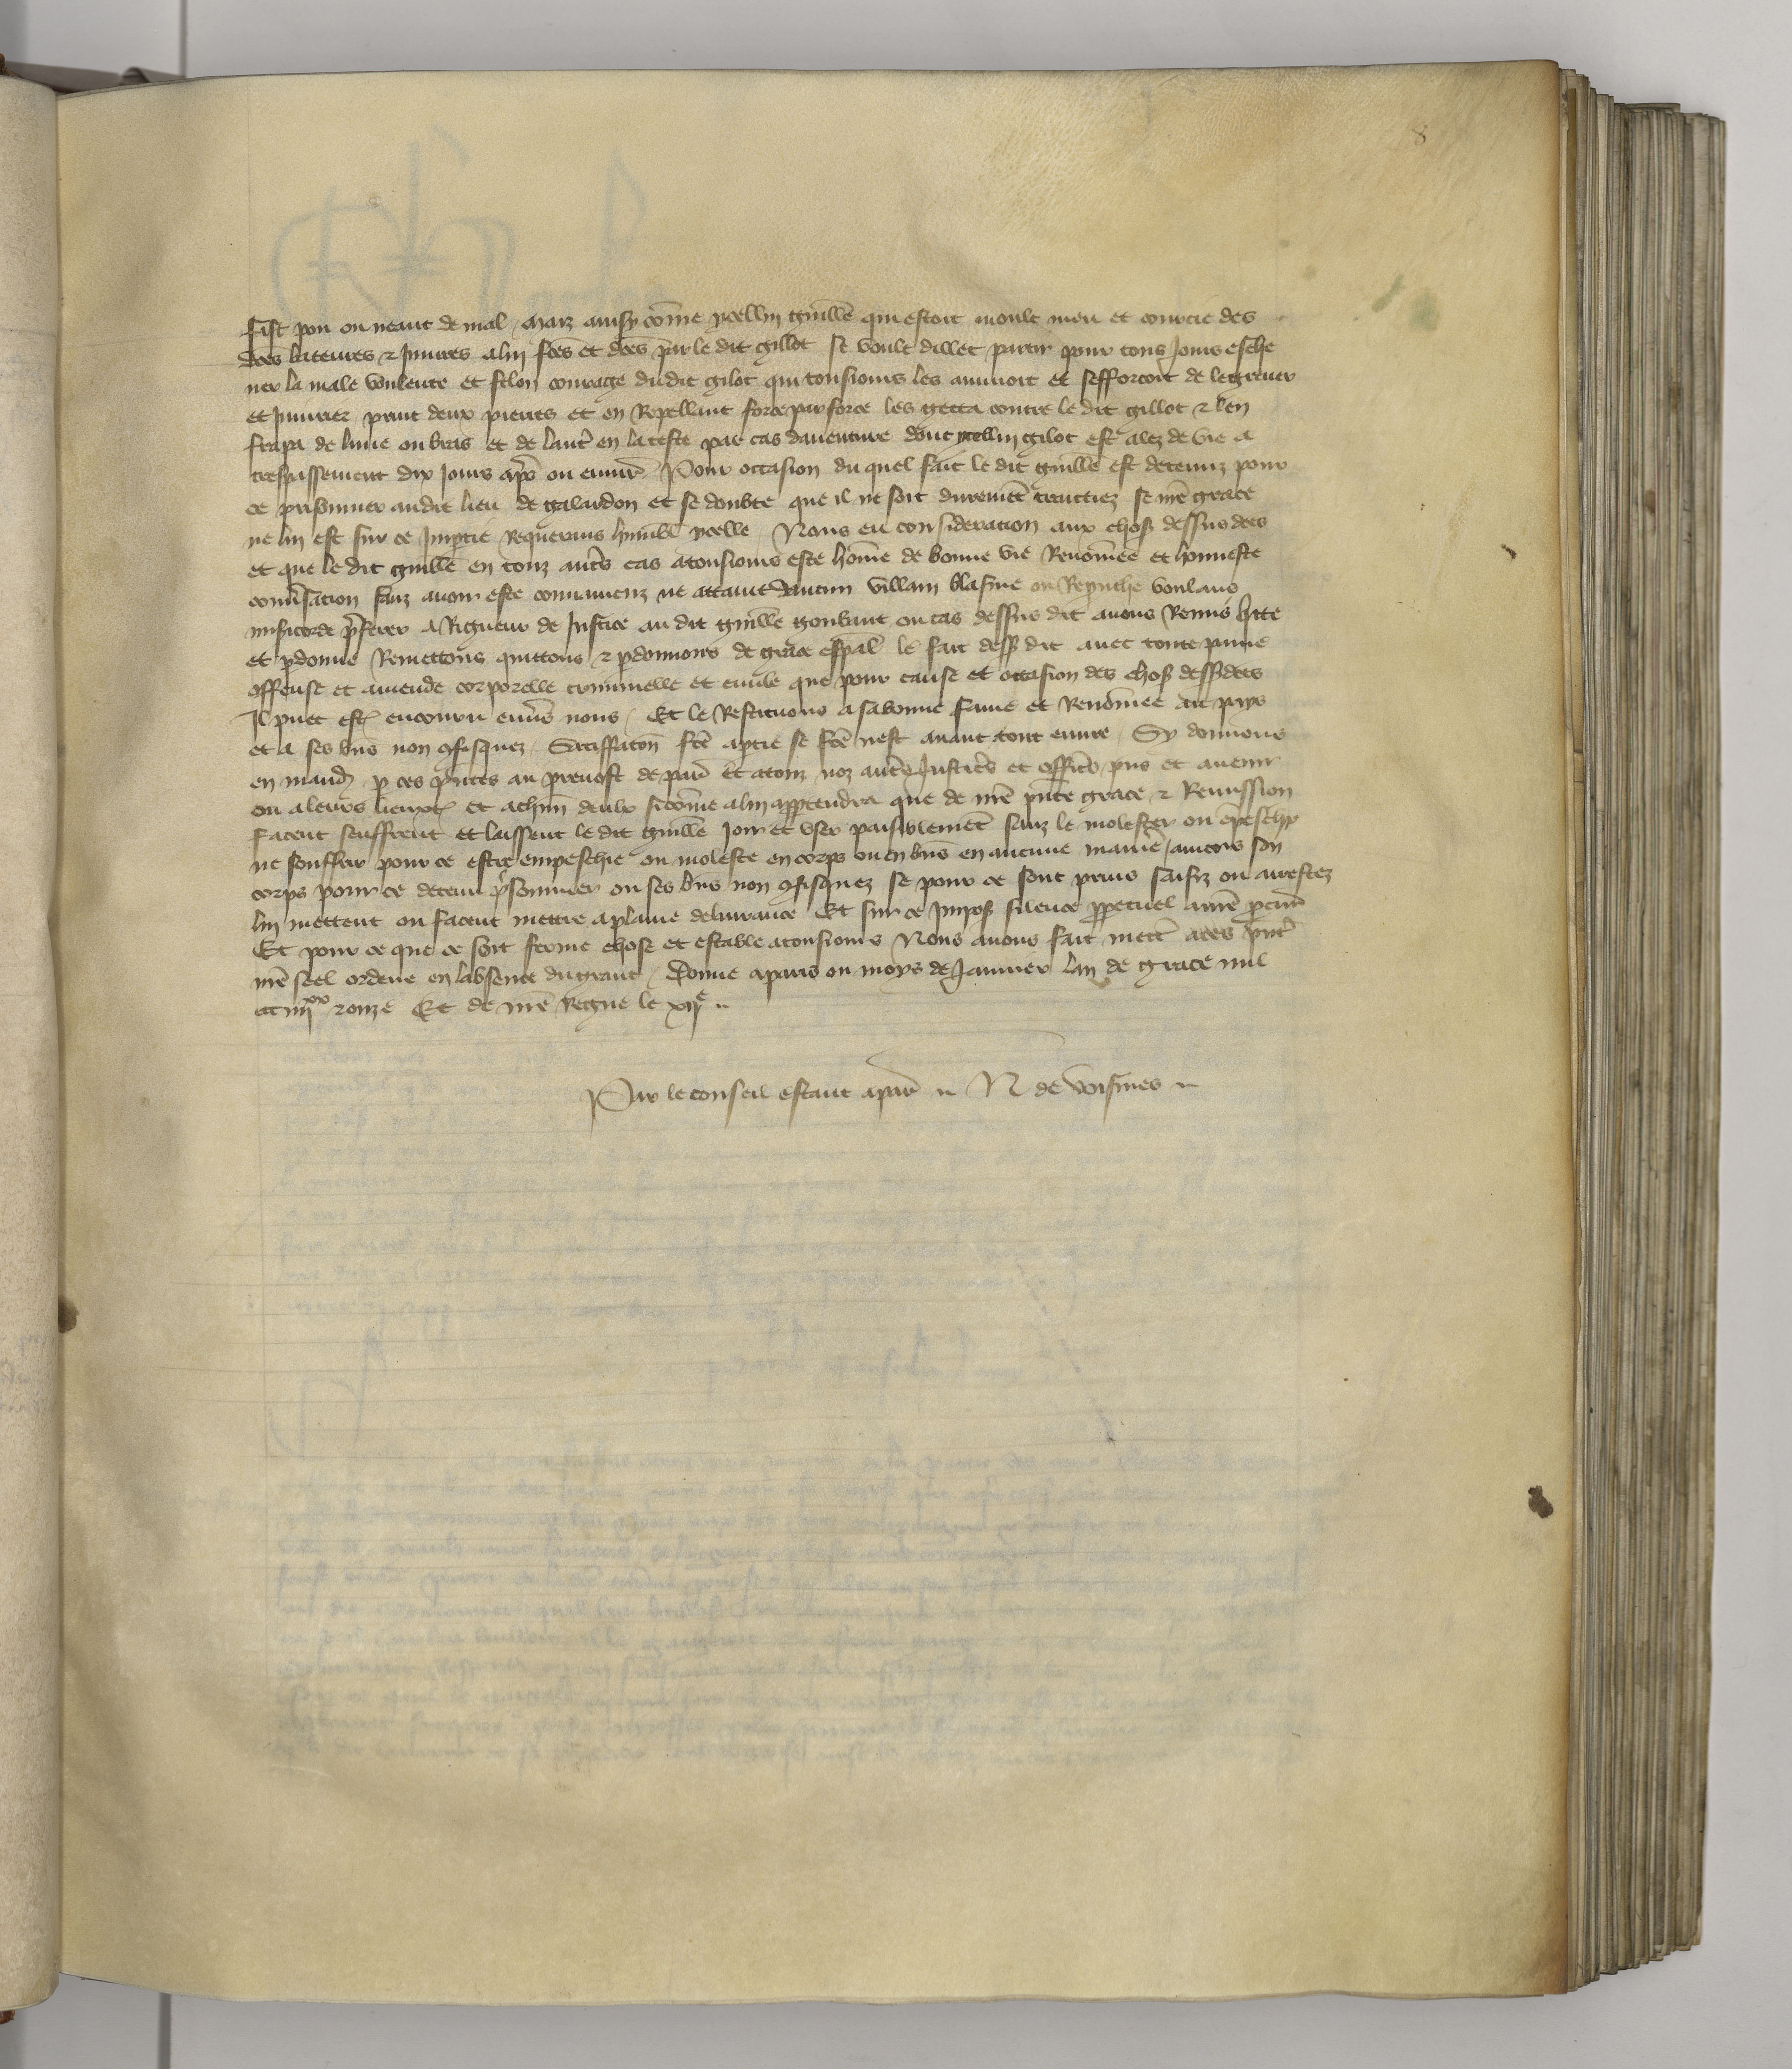 8
fist pou ou neant de mal, Maiz ainsy cōme ycellui guillē qui estoit moult meu et courcié des
dc̄es bateures ⁊ Injures a lui fc̄es et dc̄es par le dit gillot se voult dillec partir pour tousjours esche
uer la male voulente et felon courage du dit gilot qui tousjours les ... et sefforcoit de le grever
et Injurier print deux pierres et en Repellant force par force les getta contre le dit gillot ⁊ len
frapa de lune ou bras et de laut̄ en la teste par cas daventure dont ycellui gilot est alez de vie a
trespassement dix jours apr̄s ou environ Pour occasion du quel fait le dit guillē est detenuz pour
ce prisonnier audit lieu de galardon et se doubte que il ne soit duremēt traictiez se nr̄e grace
ne lui est sur ce Impartie Requerans humblē ycelle, Nous eu consideration aux chos̄ dessus dc̄es
et que le dit guillē en touz autr̄s cas a tousjours este hōme de bonne vie Renōmee et honneste
conv̄sation sanz avoir este convaincuz ne attaint daucun villain blasme ou Reprouche voulans
mis̄icorde p̄ferer a Rigueur de Justice au dit guillē ... ou cas dessus dit avons Remis ...tte
et p̄donne Remettons quittons ⁊ p̄donnons de grace esp̄al le fait dess̄ dit avec toute peine
offense et amende corporelle criminelle et civile que pour cause et occasion des chos̄ dess̄dc̄es
Il puet estr̄ encouru env̄s nous, Et le Restituons a sa bonne fame et Renōmee au pays
et a ses bn̄s non 9fisquez, Satiffacōn fc̄e a partie se fc̄e nest avant tout euvre, Sy donnons
en mand̄ p̄ ces p̄ntes au prevost de par̄ et a touz noz autr̄s Justic̄rs et offic̄rs p̄ns et avenir
ou a leurs lieuxt̄ et a chūn deulx sicōme a lui appartendra que de nr̄e p̄nte grace ⁊ Remission
facent seuffrent et laissent le dit guillē joir et user paisiblemēt sanz le molester ou ēpeschr̄
ne souffrir pour ce estre empeschie ou moleste en corps ou en bn̄s en aucune manie, aincois son
corps pour ce detenu p̄sonnier ou ses bn̄s non 9fisquez se pour ce sont prins saisiz ou arrestez
lui mettent ou facent mettre a plaine delivrance Et sur ce Impos̄ silence p̄petuel a nr̄e p̄cur̄
Et pour ce que ce soit ferme chose et estable a tousjours Nous avons fait mett̄ a ces p̄nt̄
nr̄e seel ordene en labsence du grant, Donne a paris ou moys de Janvier lan de grace mil
ccc iiiixx ⁊ onze Et de nr̄e Regne le xije
Par le conseil estant a par̄ N de voisines